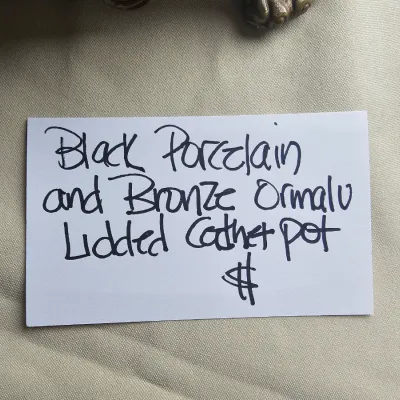 Black Porcelain
and Bronze Ormalu
Lidded Cashet pot
$